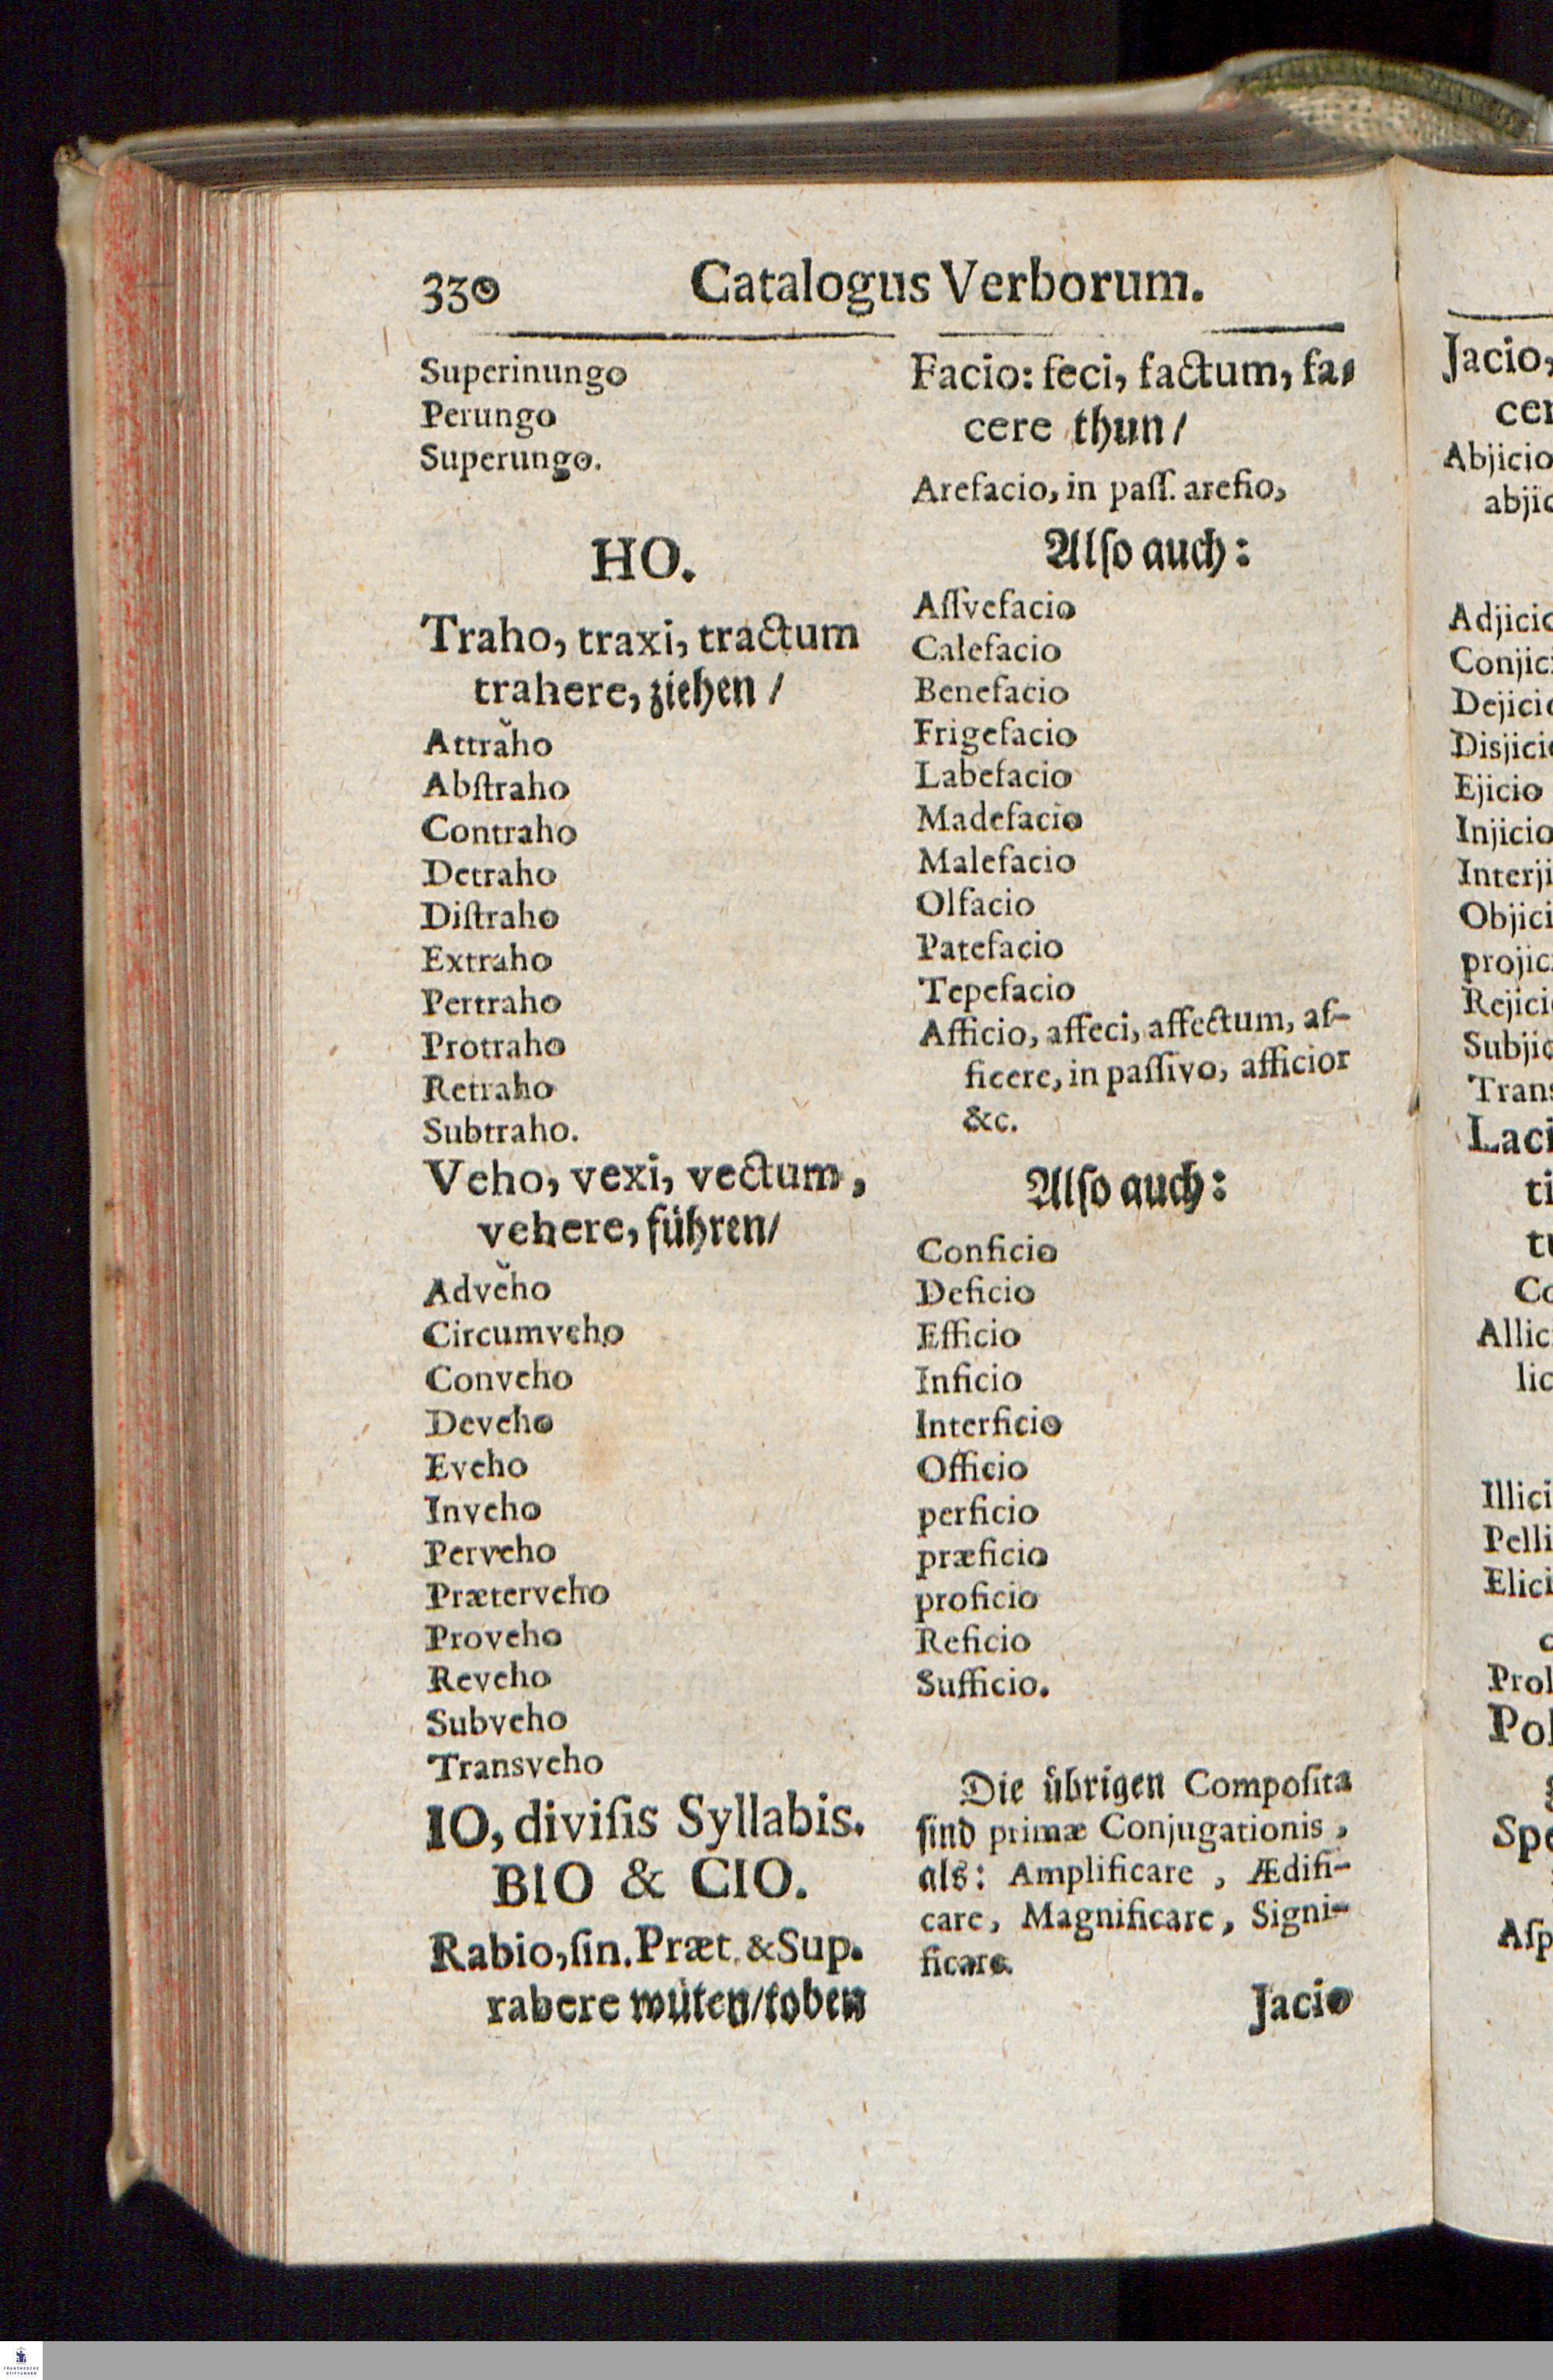 330 Catalogus Verborum.
Superinungo
Perungo
Superungo.
HO.
Traho, traxi, tractum
trahere, ziehen /
Attrăho
Abſtraho
Contraho
Detraho
Diſtraho
Extraho
Pertraho
Protraho
Retraho
Subtraho.
Veho, vexi, vectum,
vehere, führen/
Advĕho
Circumveho
Conveho
Deveho
Eveho
Inveho
Perveho
Præterveho
Proveho
Reveho
Subveho
Transveho
IO, diviſis Syllabis.
BIO & CIO.
Rabio, ſin. Præt. & Sup.
rabere wüten/toben
Facio: feci, factum, fa-
cere thun/
Arefacio, in paſſ. arefio,
Alſo auch:
Aſſvefacio
Calefacio
Benefacio
Frigefacio
Labefacio
Madefacio
Malefacio
Olfacio
Patefacio
Tepefacio
Afficio, affeci, affectum, af-
ficere, in paſſivo, afficior
&c.
Alſo auch:
Conficio
Deficio
Efficio
Inficio
Interficio
Officio
perficio
præficio
proficio
Reficio
Sufficio.
Die übrigen Compoſita
ſind primæ Conjugationis,
als: Amplificare, Ædifi-
care, Magnificare, Signi-
ficare.
Jacio
Jacio,
cer
Abjicio
abjic
Adjicic
Conjic
Dejici
Disjici
Ejicio
Injicio
Interji
Objici
projic
Rejici
Subjic
Trans
Laci
ti
tu
Co
Allic
lic
Illici
Pelli
Elici
c
Prol
Pol
Spe
Aſp
FRANCKESCHE
STIFTUNGEN